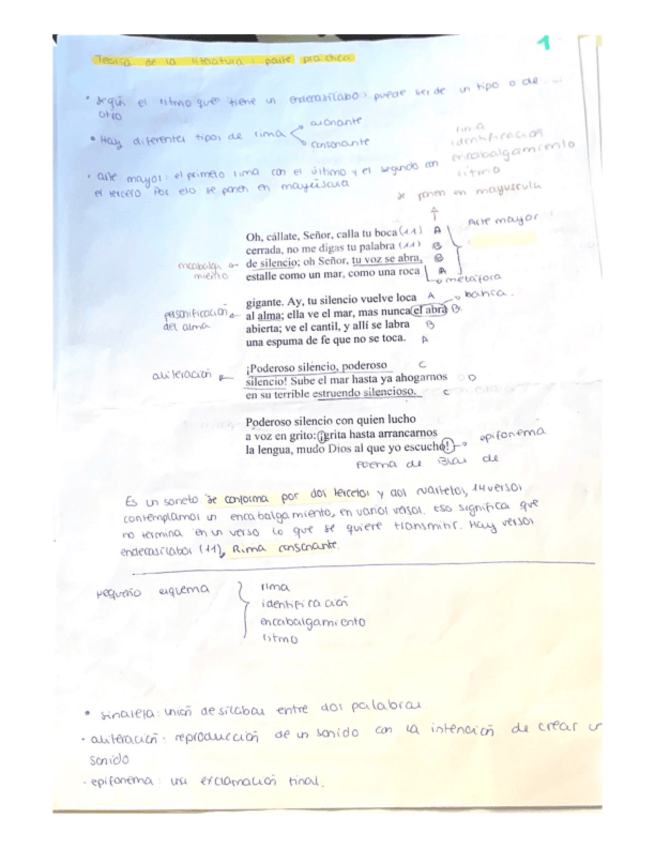 1
Teoría de la literatura: parte práctica
• Según el ritmo que tiene un endecasílabo, puede ser de un tipo o de
otro
• Hay diferentes tipos de rima
asonante
consonante
rima
identificación
encabalgamiento
ritmo
• arte mayor: el primero rima con el último y el segundo con
el tercero. Por eso se ponen en mayúscula
se ponen en mayúscula
Arte mayor
Oh, cállate, Señor, calla tu boca (11) A
cerrada, no me digas tu palabra (11) B
de silencio; oh Señor, tu voz se abra, B
estalle como un mar, como una roca A
encabalga
miento
metáfora
gigante. Ay, tu silencio vuelve loca A
al alma; ella ve el mar, mas nunca el abra B
abierta; ve el cantil, y allí se labra B
una espuma de fe que no se toca. A
bahía.
personificación
del alma
¡Poderoso silencio, poderoso C
silencio! Sube el mar hasta ya ahogarnos D
en su terrible estruendo silencioso. C
aliteración
Poderoso silencio con quien lucho
a voz en grito: ¡grita hasta arrancarnos
la lengua, mudo Dios al que yo escucho!
epifonema
Poema de Blas de
Es un soneto se conforma por dos tercetos y dos cuartetos, 14 versos
contemplamos un encabalgamiento, en varios versos. eso significa que
no termina en un verso lo que se quiere transmitir. Hay versos
endecasílabos (11), Rima consonante.
Pequeño esquema
rima
identificación
encabalgamiento
ritmo
• sinalefa: unión de sílabas entre dos palabras
• aliteración: reproducción de un sonido con la intención de crear un
sonido
- epifonema: una exclamación final.